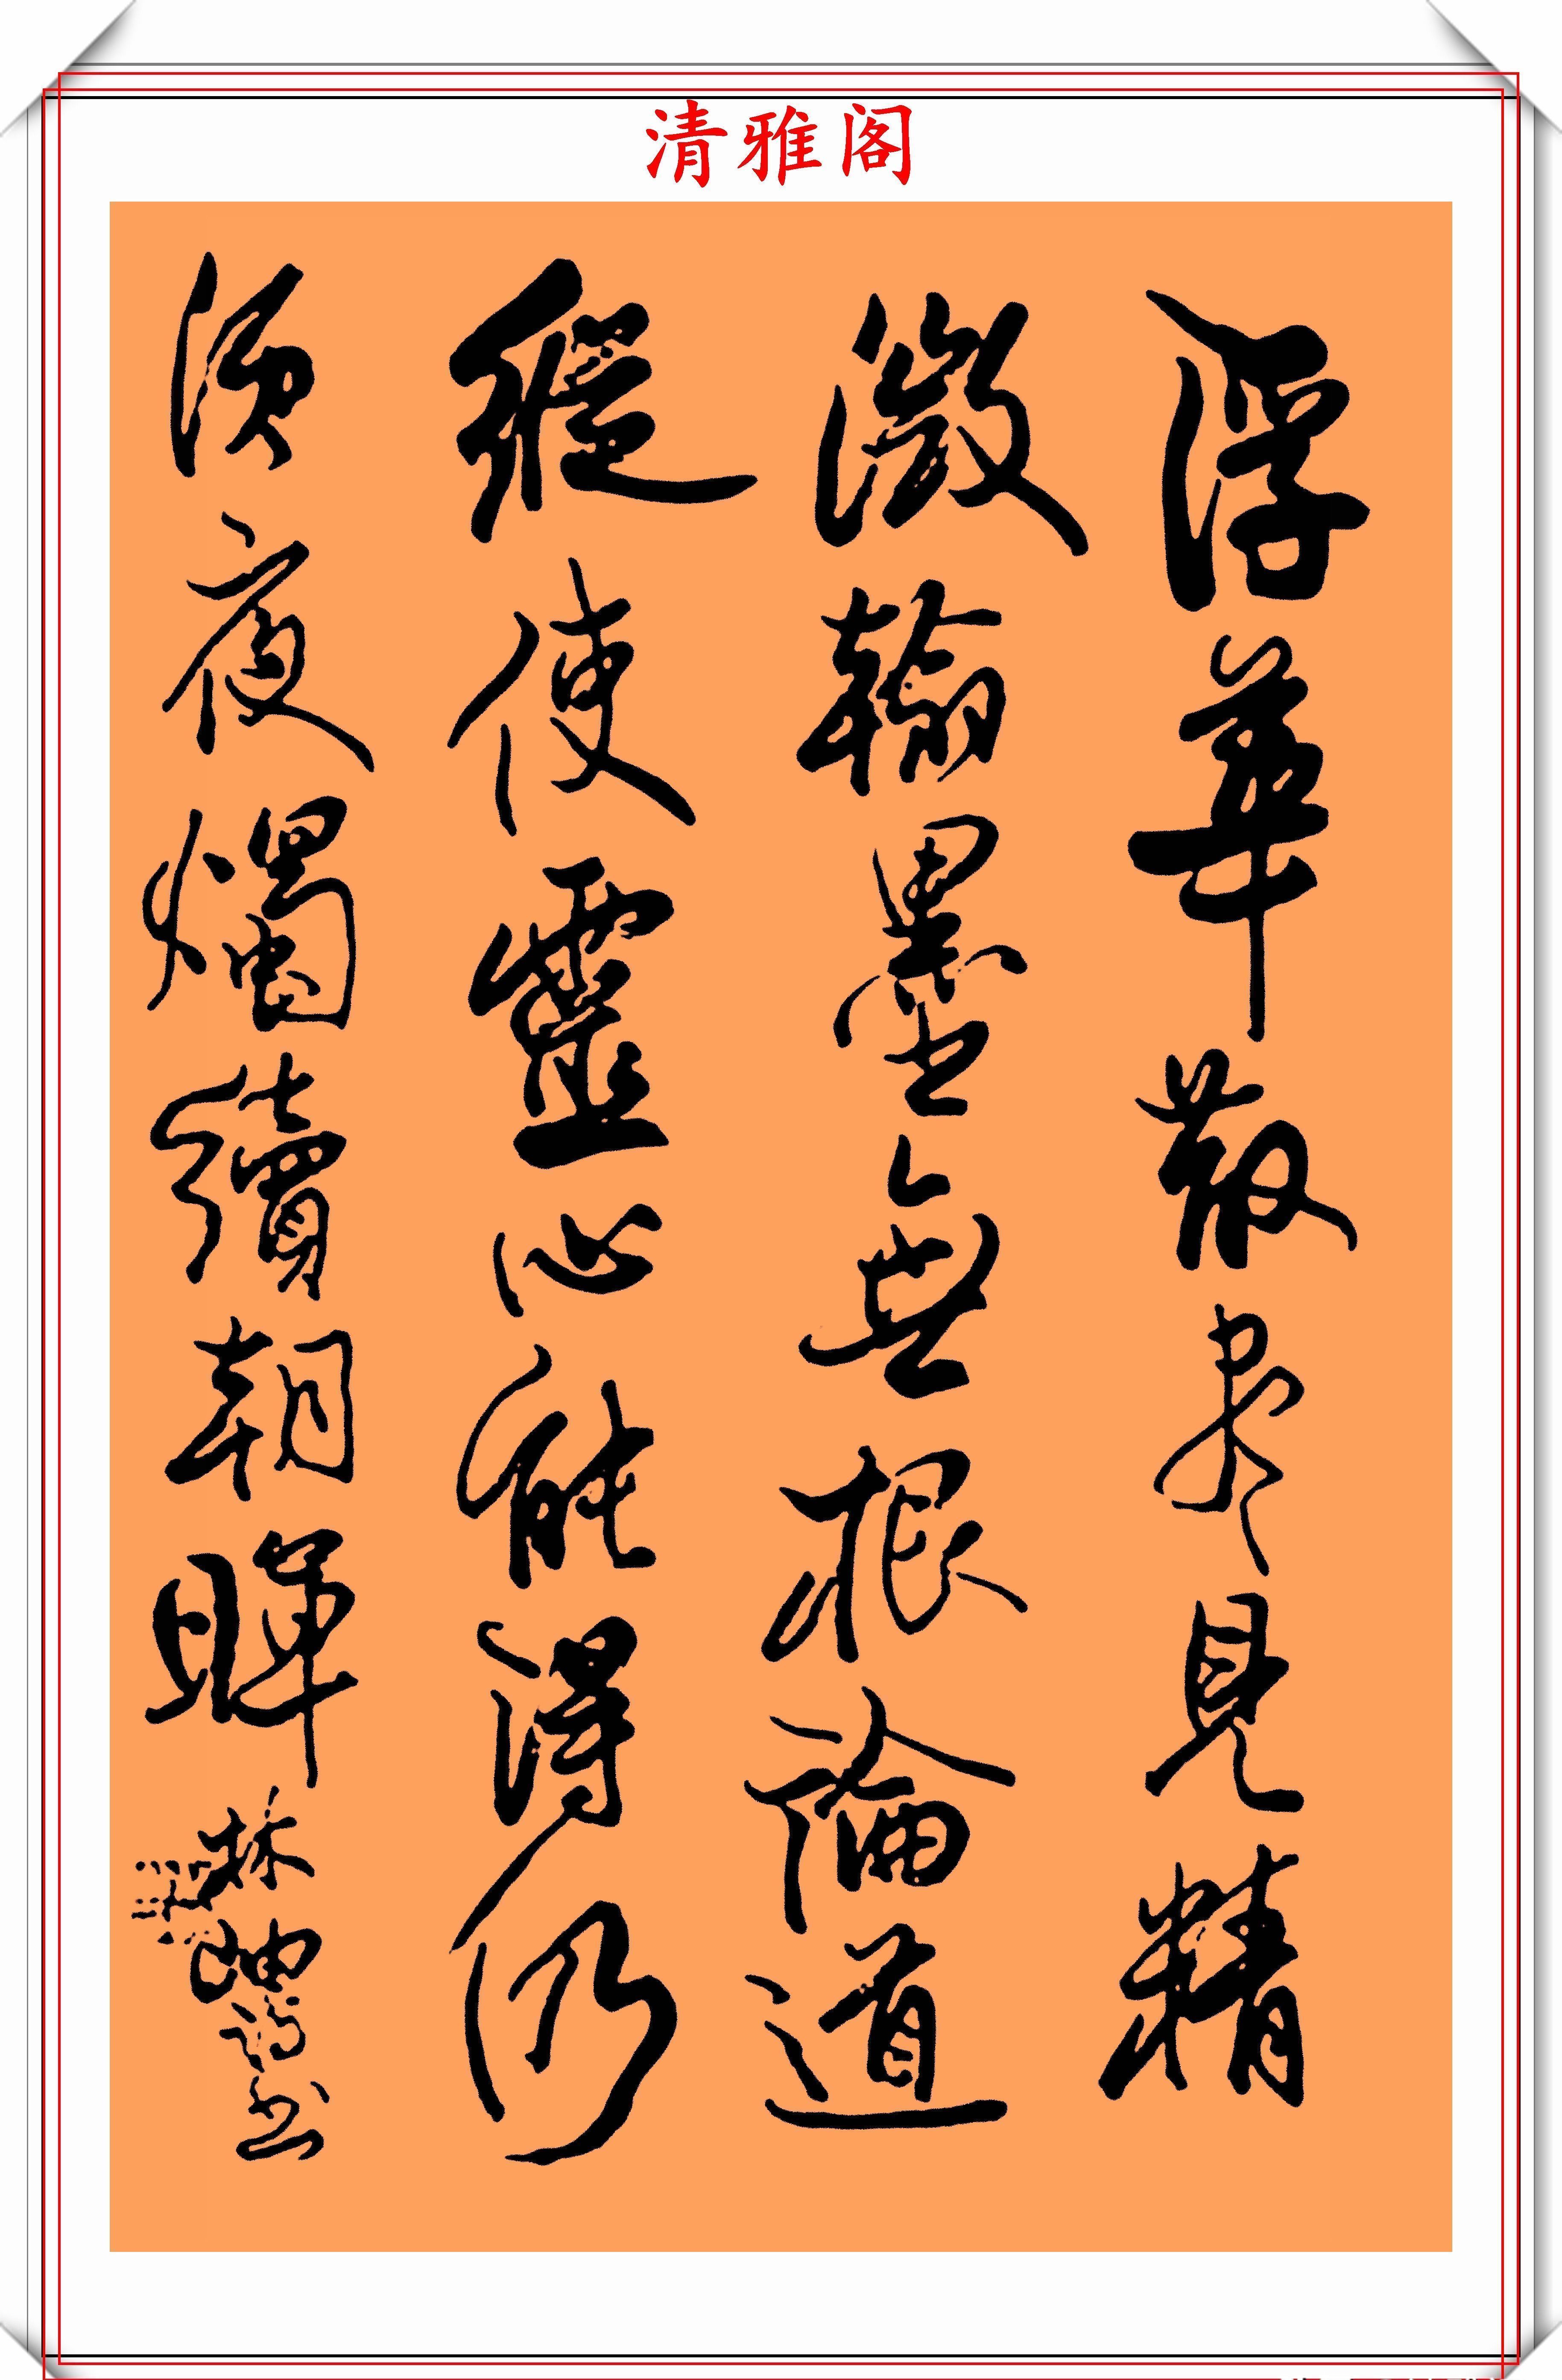 清雅阁
浮華散盡見精
微翰墨無根論道
縱使靈心能澤仍
須夜燭續朝暉
林岫書